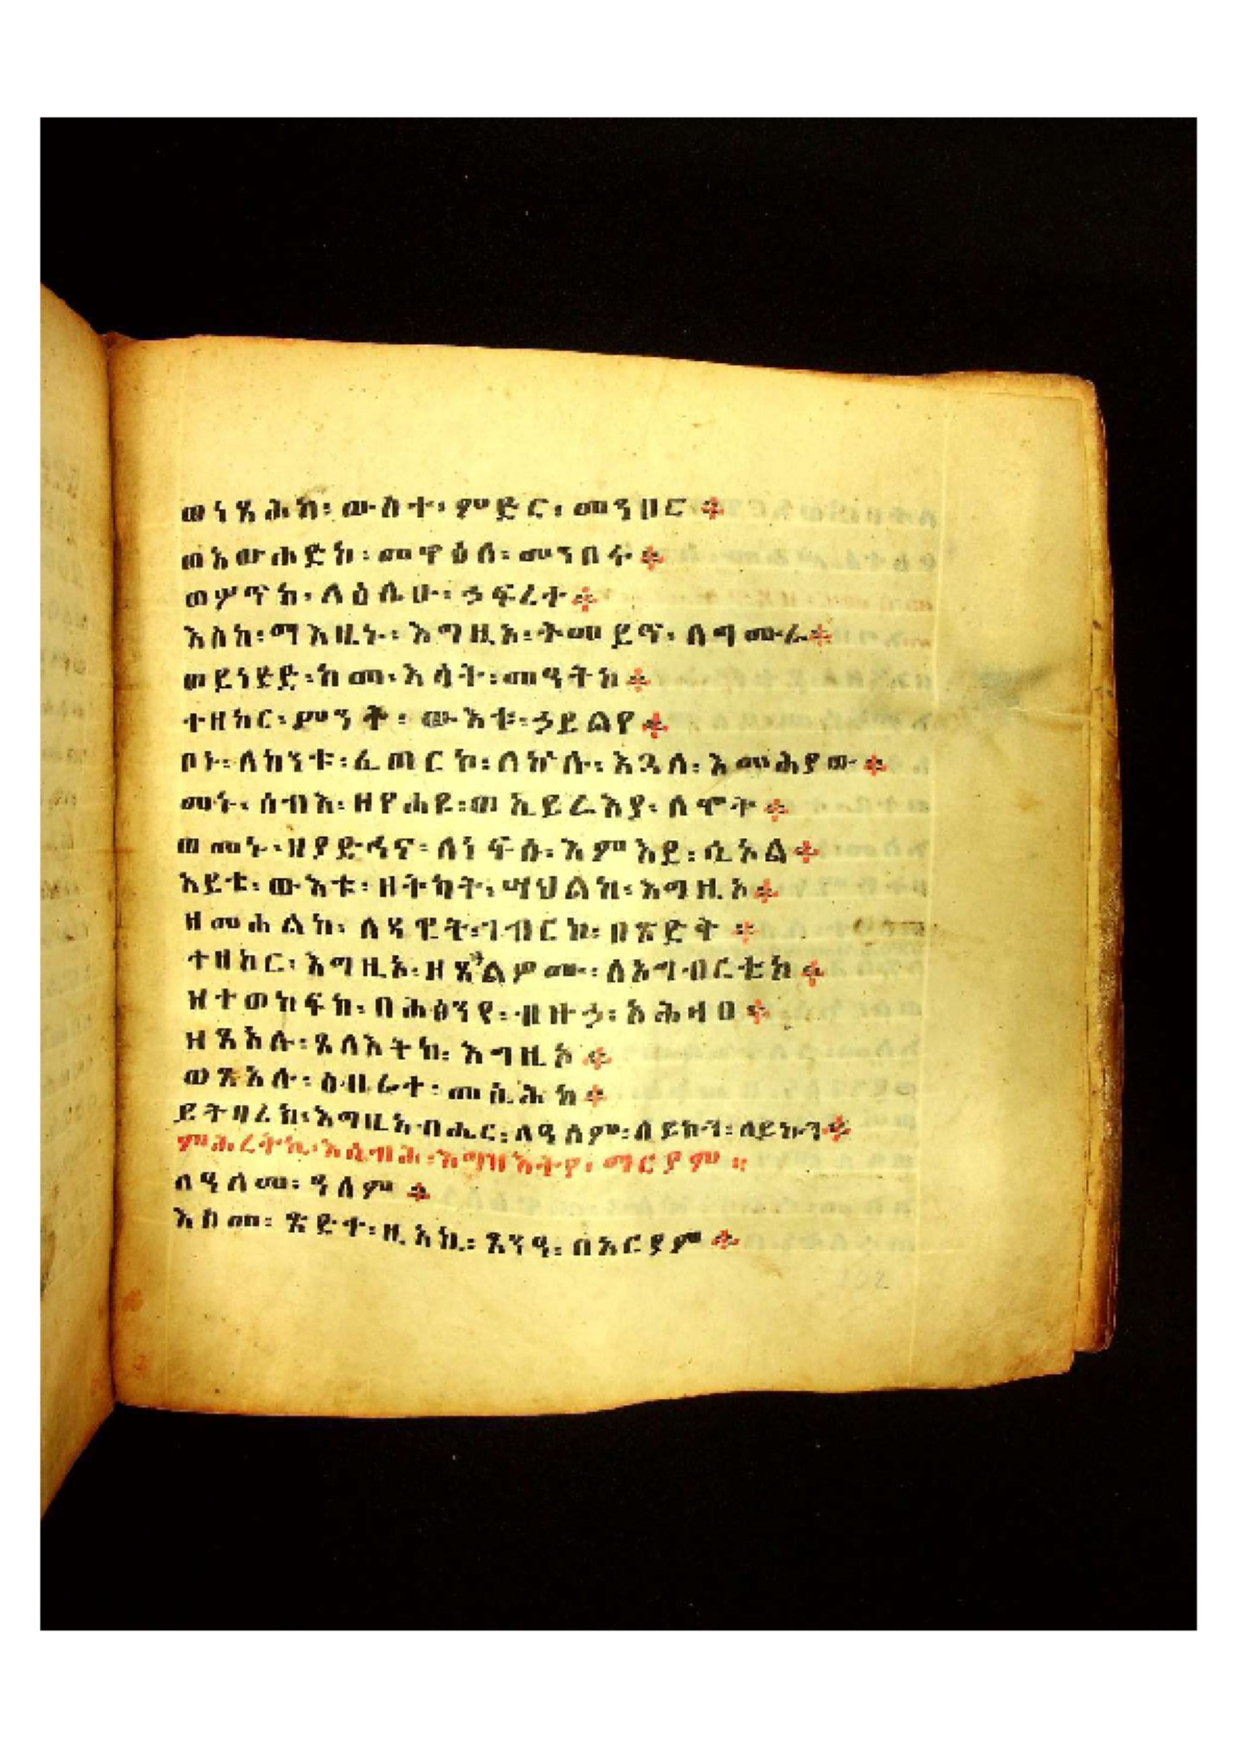 ወነጻሕከ፡ ውስተ፡ ምድር፡ መንበሮ ፨
ወአውሐድከ፡ መዋዕለ፡ መንበሩ ፨
ወሦጥከ፡ ላዕሌሁ፡ ኃፍረተ ፨
እስከ፡ ማእዜኑ፡ እግዚአ፡ ትመይጥ፡ ለግሙራ ፨
ወይነድድ፡ ከመ፡ እሳት፡ መዓትከ ፨
ተዘከር፡ ምንት፡ ውእቱ፡ ኃይልየ ፨
ቦኑ፡ ለከንቱ፡ ፈጠርኮ፡ ለኵሉ፡ እጓለ፡ እመሕያው ፨
መኑ፡ ሰብእ፡ ዘየሐዩ፡ ወኢይሬእያ፡ ለሞት ፨
ወመኑ፡ ዘያድኅና፡ ለነፍሱ፡ እምእደ፡ ሲኦል ፨
አይቴ፡ ውእቱ፡ ዘትካት፡ ሣህልከ፡ እግዚኦ ፨
ዘመሐልከ፡ ለዳዊት፡ ገብርከ፡ በጽድቅ ፨
ተዘከር፡ እግዚኦ፡ ዘጼአልዎሙ፡ ለአግብርቲከ ፨
ዘተወከፍኩ፡ በሕፅንየ፡ ብዙኃ፡ አሕዛበ ፨
ዘጸአሉ፡ ጸላእትከ፡ እግዚኦ ፨
ወጸአሉ፡ ዕብሬተ፡ መሲሕከ ፨
ይትባረክ፡ እግዚአብሔር፡ ለዓለም፡ ለይኩን፡ ለይኩን ፨
ምሕረትኪ፡ እሴብሕ፡ እግዝእትየ፡ ማርያም ።
ለዓለመ፡ ዓለም ፨
እስመ፡ ጽድቀ፡ ዚአኪ፡ ጸንዓ፡ በአርያም ፨